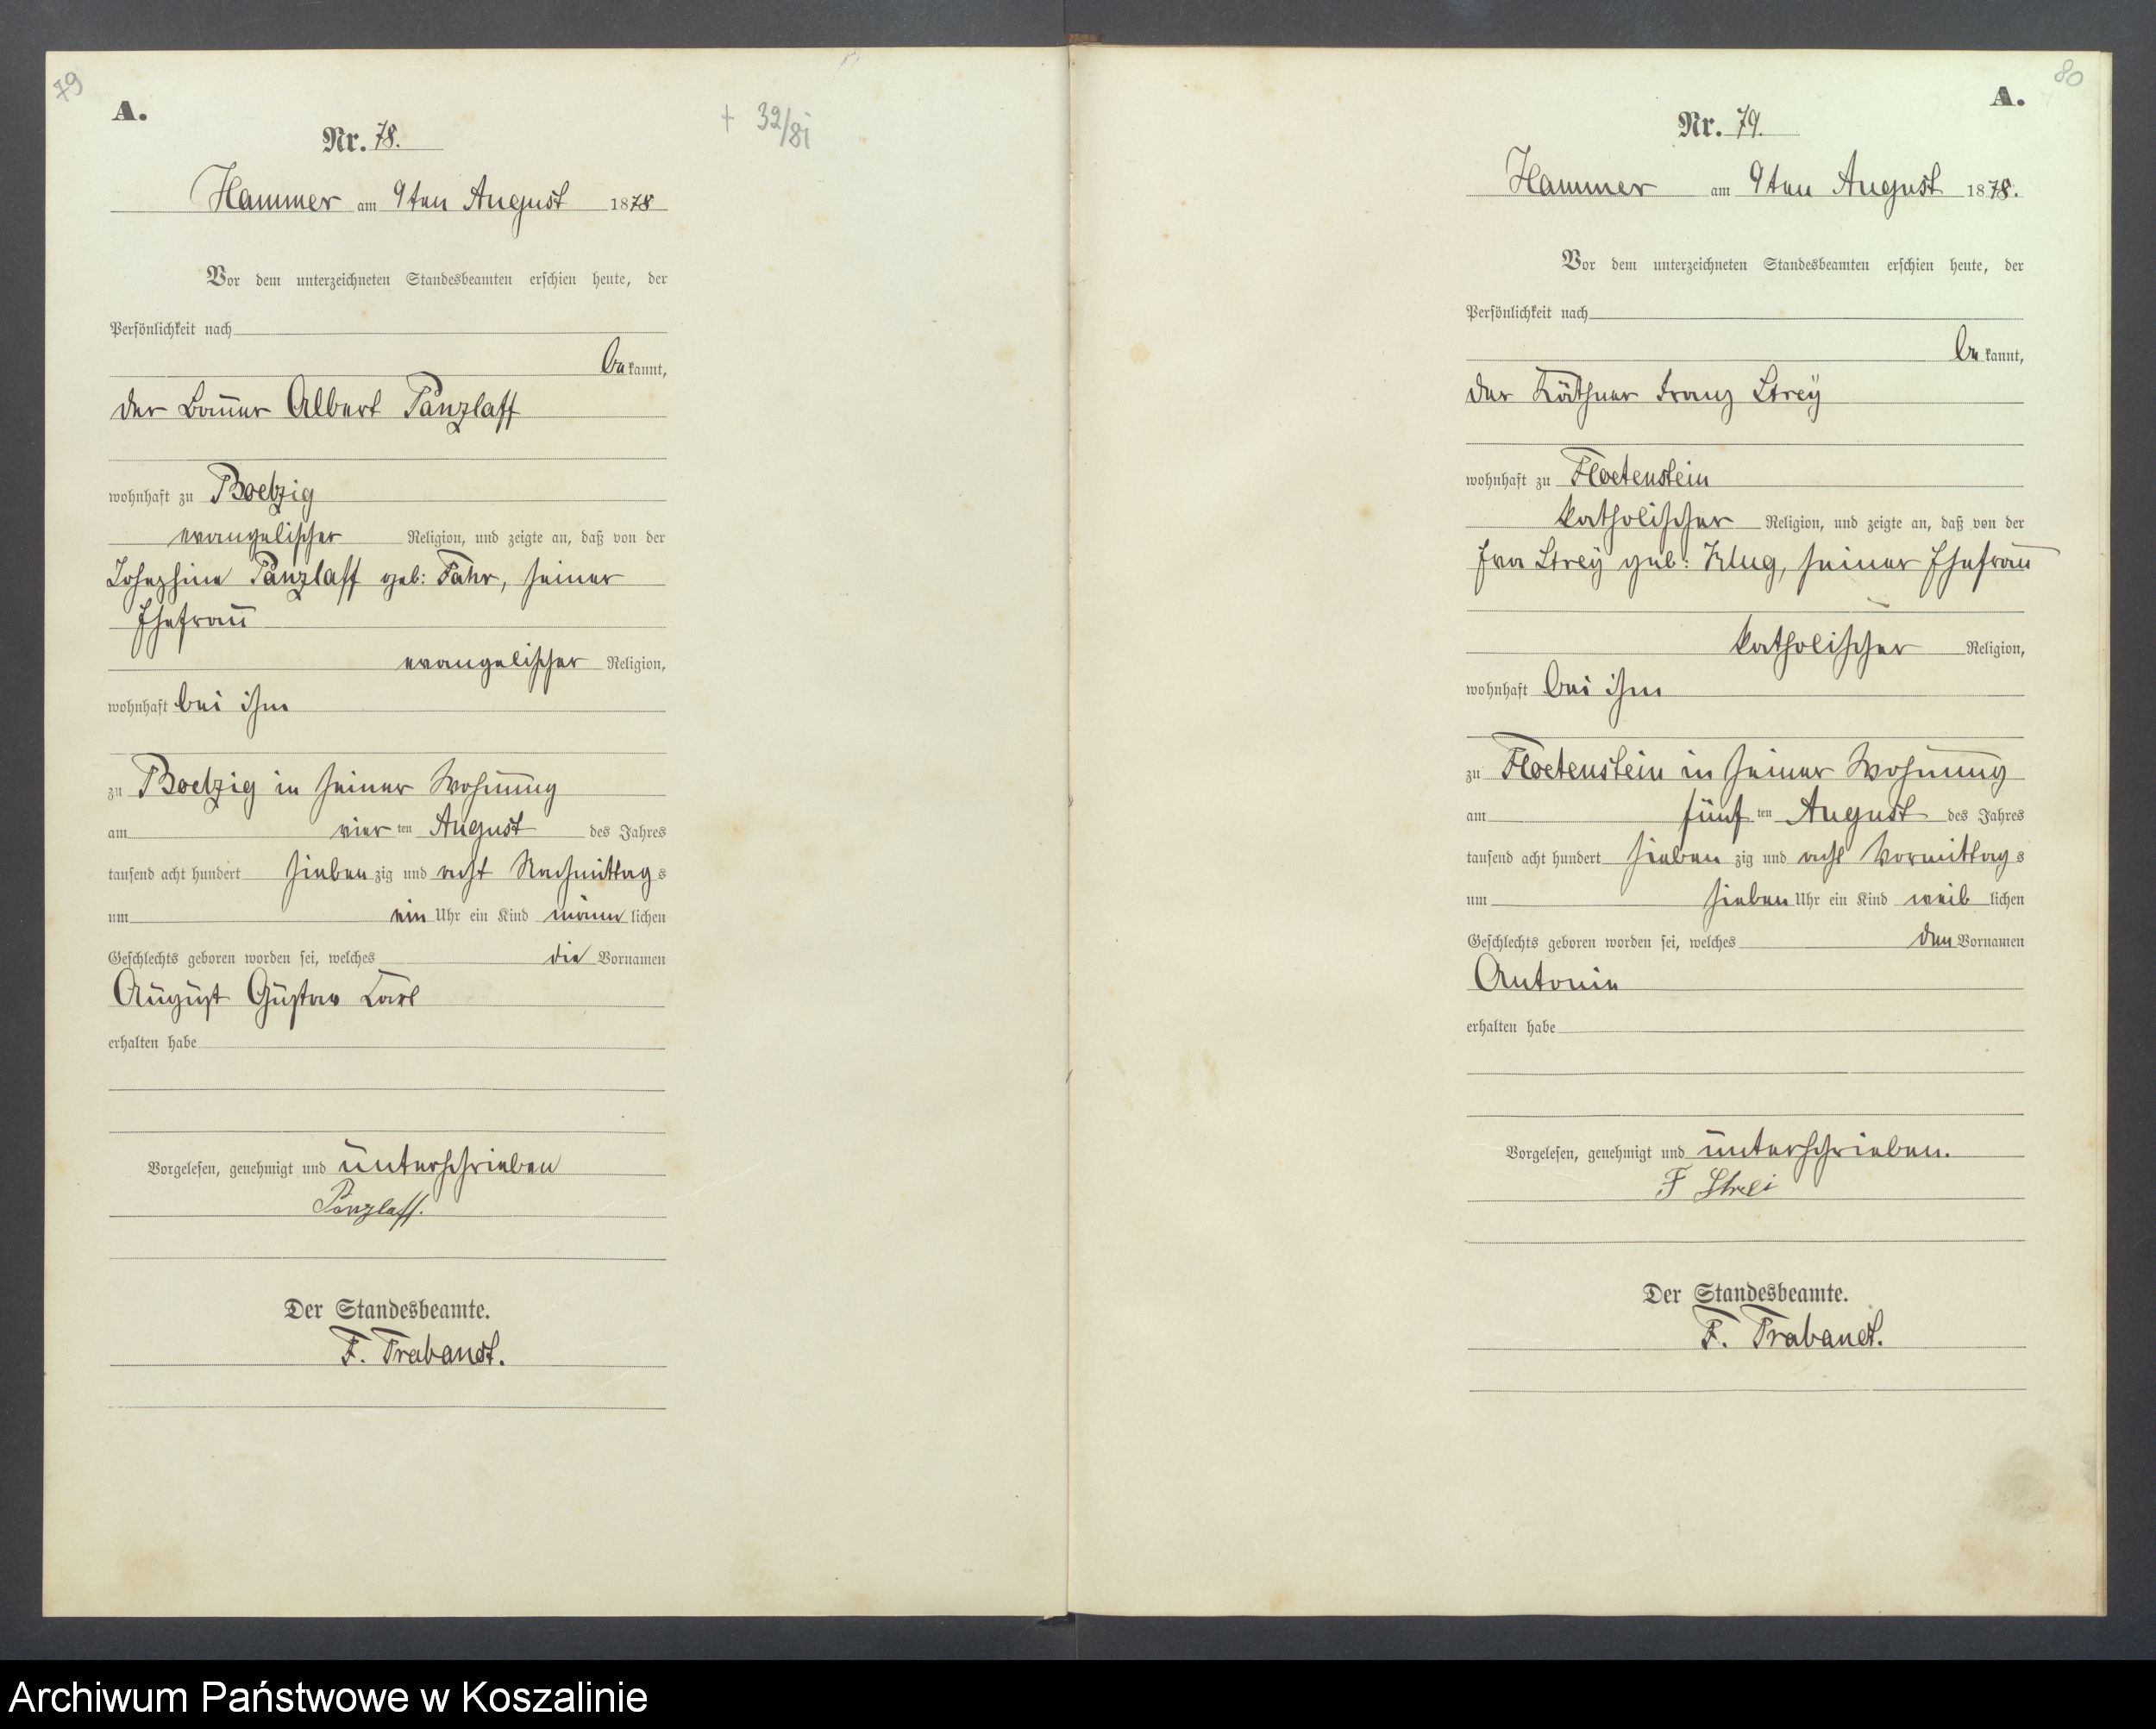 79
A.
+ 32/81
Nr. 78.
Hammer am 9ten August 1878
Vor dem unterzeichneten Standesbeamten erschien heute, der
Persönlichkeit nach
be kannt,
der Bauer Albert Panzlaff
wohnhaft zu Boelzig
evangelischer Religion, und zeigte an, daß von der
Josephine Panzlaff geb: Fahr, seiner
Ehefrau
evangelischer Religion,
wohnhaft bei ihm
zu Boelzig in seiner Wohnung
am vier ten August des Jahres
tausend acht hundert sieben zig und acht Nachmittag s
um ein Uhr ein Kind männ lichen
Geschlechts geboren worden sei, welches die Vornamen
August Gustav Carl
erhalten habe
Vorgelesen, genehmigt und unterschrieben
Panzlaff.
Der Standesbeamte.
F. Trabandt.
80
A.
Nr. 79.
Hammer am 9ten August 1878.
Vor dem unterzeichneten Standesbeamten erschien heute, der
Persönlichkeit nach
be kannt,
der Käthner Franz Strey
wohnhaft zu Floetenstein
katholischer Religion, und zeigte an, daß von der
Eva Strey geb: Klug, seiner Ehefrau
katholischer Religion,
wohnhaft bei ihm
zu Floetenstein in seiner Wohnung
am fünf ten August des Jahres
tausend acht hundert sieben zig und acht Vormittag s
um sieben Uhr ein Kind weib lichen
Geschlechts geboren worden sei, welches den Vornamen
Antonie
erhalten habe
Vorgelesen, genehmigt und unterschrieben.
F Strei
Der Standesbeamte.
F. Trabandt.
Archiwum Państwowe w Koszalinie